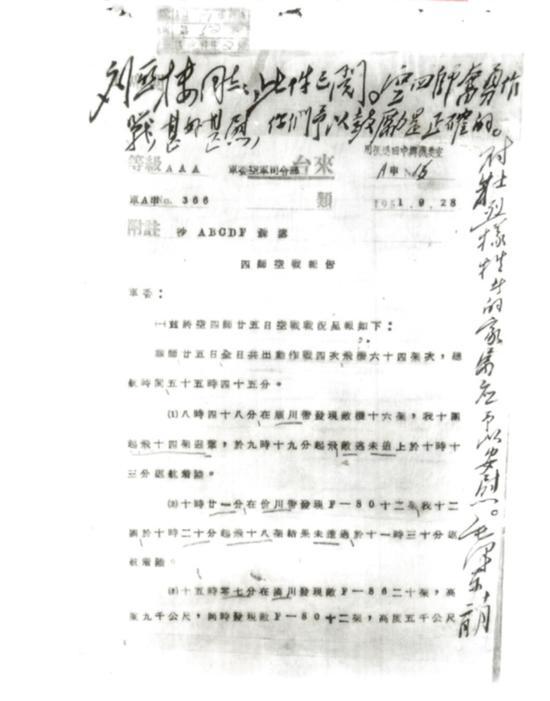 刘亚楼同志：此件已阅。空四师奋勇作
战，甚好甚慰，你们予以鼓励是正確的。
对壮烈牺牲者的家属应予以安慰。毛泽东 十月二日
等級 AAA 軍委空軍司令部 来台
A申 15
軍A申No. 366 類 1951.9.28
附註 沙 ABCDF
四師空戰報告
軍委：
㈠茲於空四師廿五日空戰戰況呈報如下：
該師廿五日全日共出動作戰四次飛機六十四架次，總
航時間五十五時四十五分。
⑴八時四十八分在順川智發現敵機十六架，我十團
起飛十四架迎擊，於九時十九分起飛敵逃未追上於十時十
三分返航着陸。
⑵十時廿一分在价川智發現F—80十二架我十二
團於十時二十分起飛十八架結果未遭遇於十一時三十分返
航着陸。
⑶十五時零七分在順川發現敵F—86二十架，高
度九千公尺，同時發現敵F—80十二架，高度五千公尺